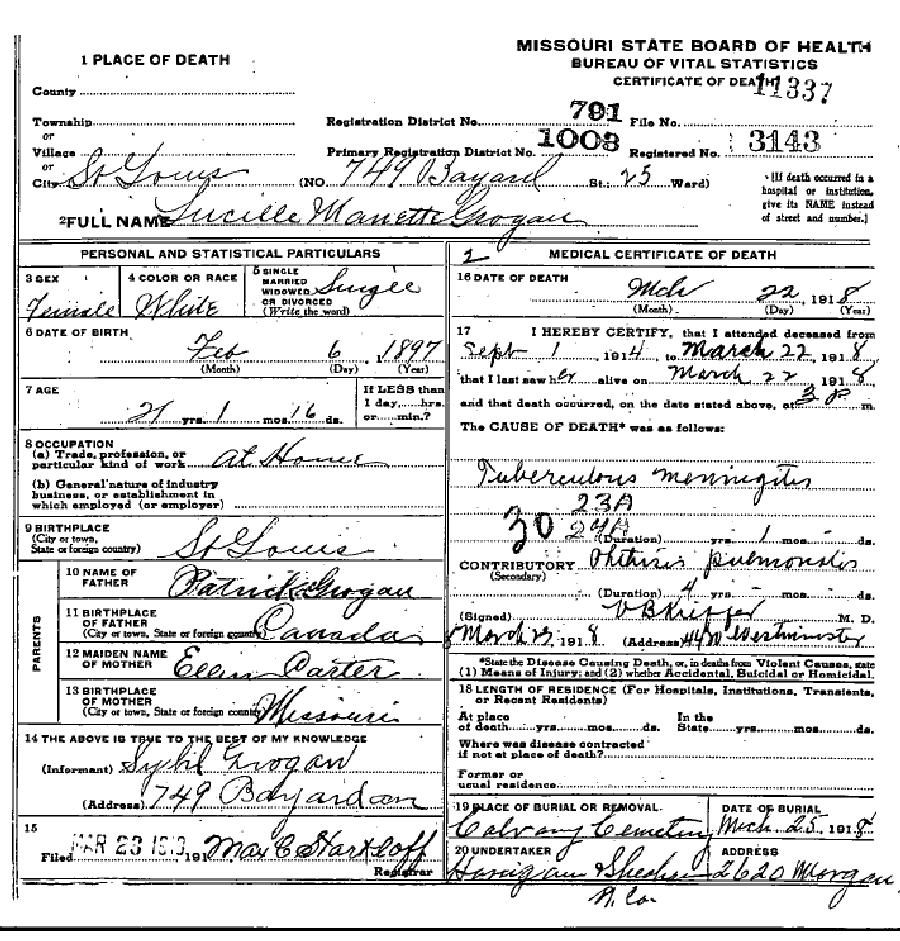 MISSOURI STATE BOARD OF HEALTH
BUREAU OF VITAL STATISTICS
CERTIFICATE OF DEATH
11337
1 PLACE OF DEATH
County
Township
or
Village
or
City St Louis (NO. 749 Bayard St.; 25 Ward)
Registration District No. 791 File No.
Primary Registration District No. 1003 Registered No. 3143
[If death occurred in a
hospital or institution,
give its NAME instead
of street and number.]
2 FULL NAME Lucille Manette Grogan
PERSONAL AND STATISTICAL PARTICULARS
3 SEX
Female
4 COLOR OR RACE
White
5 SINGLE
MARRIED
WIDOWED
OR DIVORCED
(Write the word)
Single
6 DATE OF BIRTH
Feb 6, 1897
(Month) (Day) (Year)
7 AGE
21 yrs. 1 mos. 16 ds.
If LESS than
1 day,......hrs.
or......min.?
8 OCCUPATION
(a) Trade, profession, or
particular kind of work At Home
(b) General nature of industry
business, or establishment in
which employed (or employer)
9 BIRTHPLACE
(City or town,
State or foreign country)
St Louis
PARENTS
10 NAME OF
FATHER
Patrick Grogan
11 BIRTHPLACE
OF FATHER
(City or town, State or foreign country)
Canada
12 MAIDEN NAME
OF MOTHER
Ellen Carter
13 BIRTHPLACE
OF MOTHER
(City or town, State or foreign country)
Missouri
14 THE ABOVE IS TRUE TO THE BEST OF MY KNOWLEDGE
(Informant) Sybil Grogan
(Address) 749 Bayard av
15
Filed MAR 23 191 Max C Starkloff
Registrar
2
MEDICAL CERTIFICATE OF DEATH
16 DATE OF DEATH
Mch 22, 1918
(Month) (Day) (Year)
17 I HEREBY CERTIFY, that I attended deceased from
Sept 1, 1914, to March 22, 1918,
that I last saw her alive on March 22 1918,
and that death occurred, on the date stated above, at 3 P m.
The CAUSE OF DEATH* was as follows:
Tuberculous meningitis
23A
30 24A
(Duration) yrs. 1 mos. ds.
CONTRIBUTORY Phthisis pulmonalis
(Secondary)
(Duration) 4 yrs. - mos. ds.
(Signed) M. D.
March 23, 1918 (Address) Westminster
*State the Disease Causing Death, or, in deaths from Violent Causes, state
(1) Means of Injury; and (2) whether Accidental, Suicidal or Homicidal.
18 LENGTH OF RESIDENCE (For Hospitals, Institutions, Transients,
or Recent Residents)
At place
of death......yrs......mos......ds.
In the
State......yrs......mos......ds.
Where was disease contracted
if not at place of death?
Former or
usual residence
19 PLACE OF BURIAL OR REMOVAL
Calvary Cemetery
DATE OF BURIAL
Mch 25 1918
20 UNDERTAKER
ADDRESS
2620 Morgan